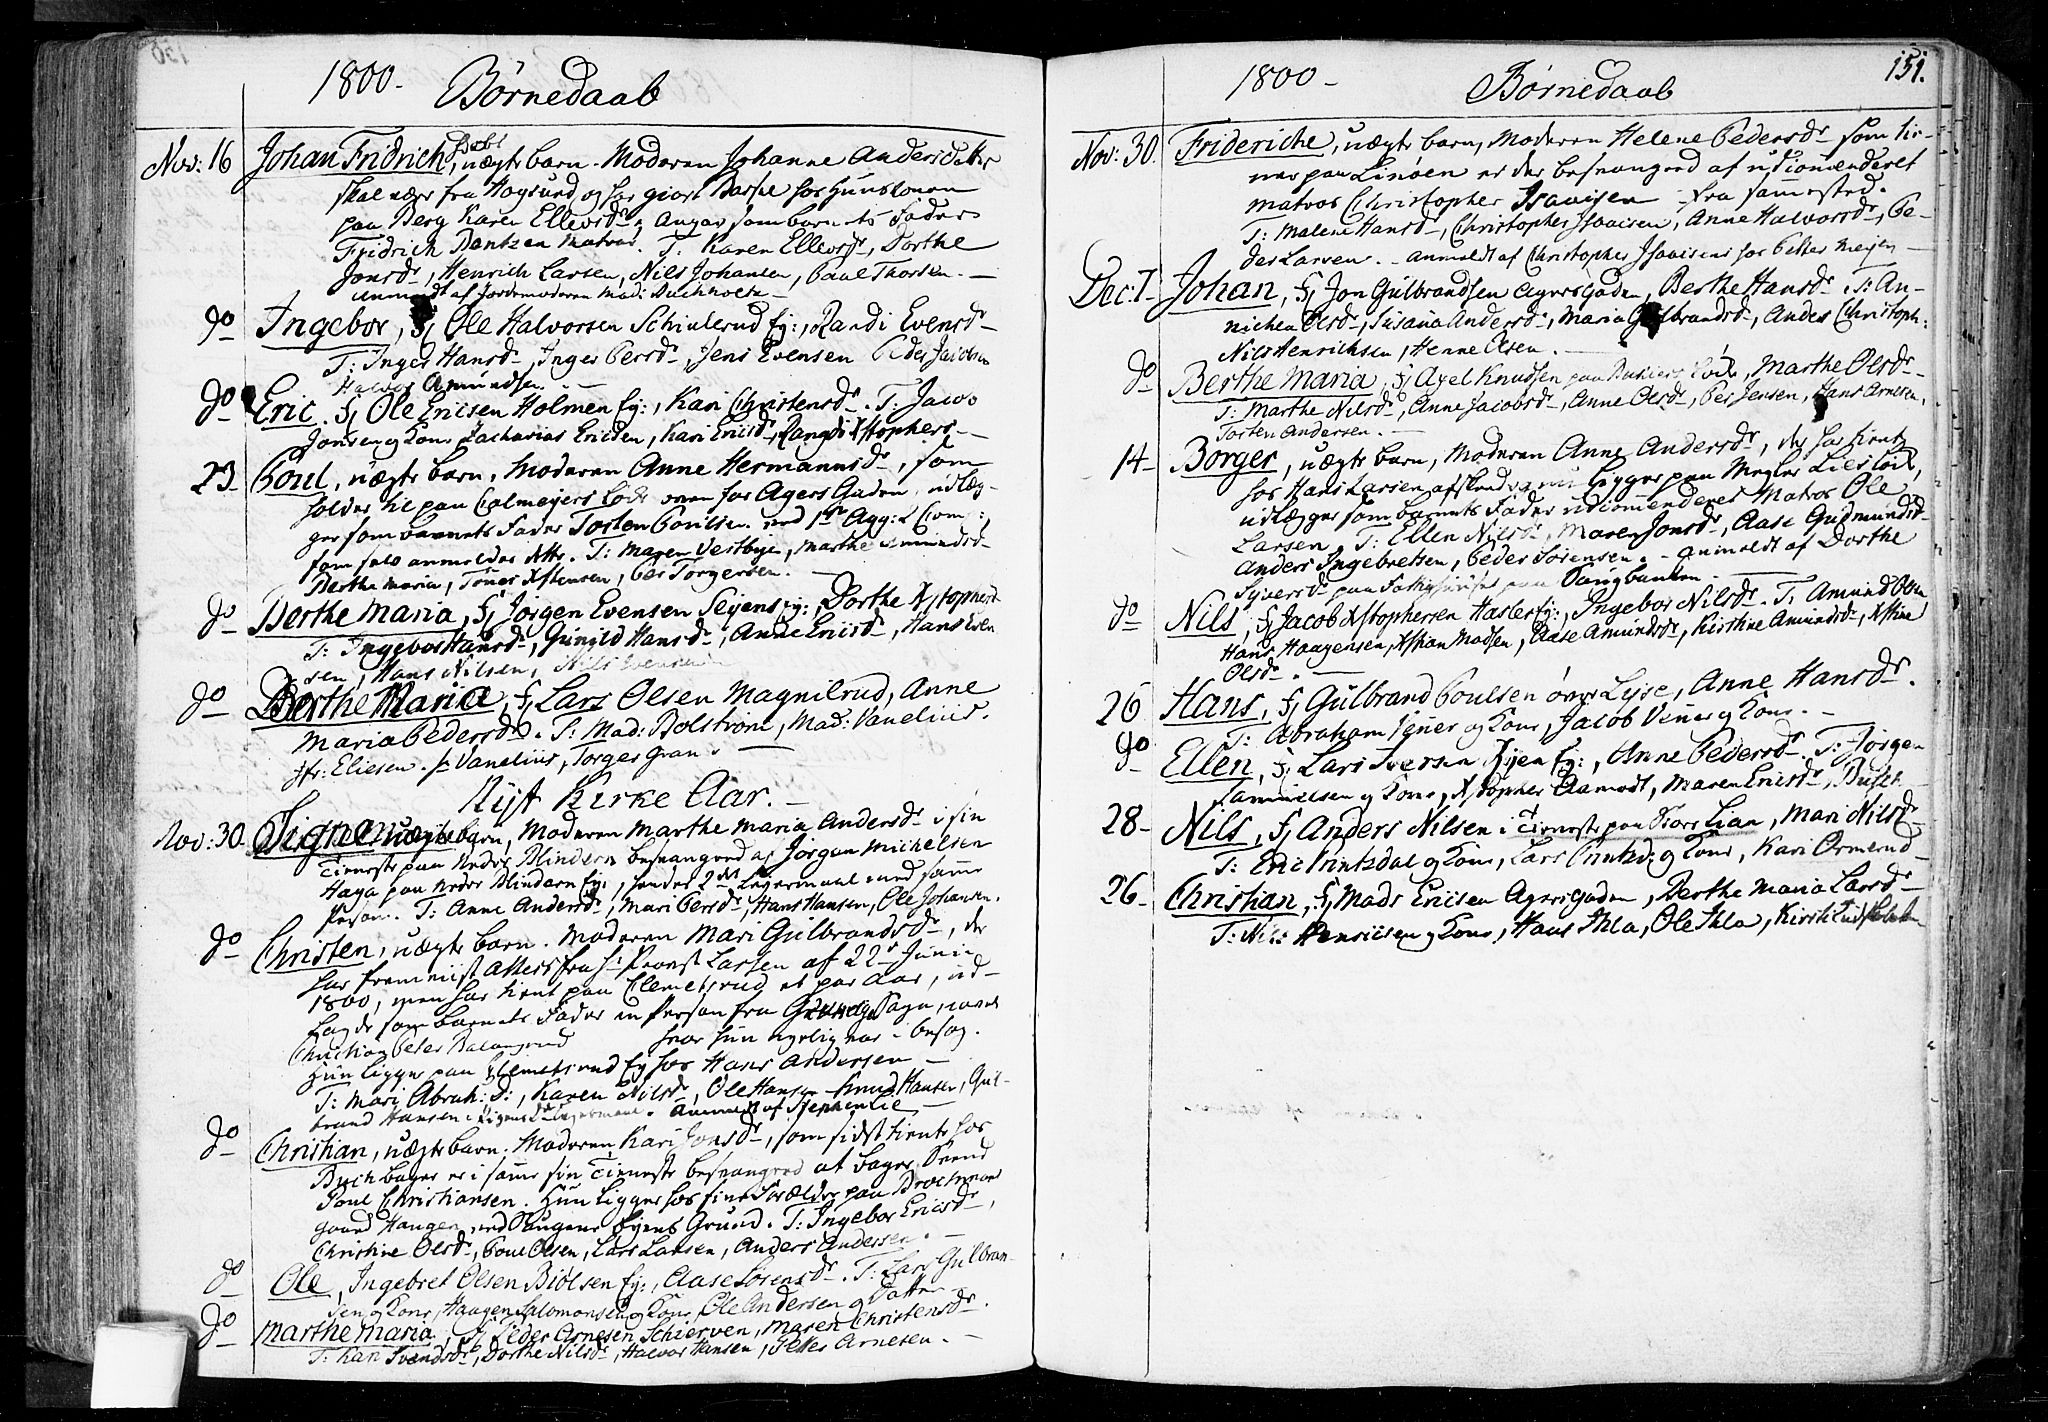 1800. Børnedaab
Nov: 16 Johan Fridrich, uægte barn. Moderen Johanne Andersdatter
skal være fra Hogsund og har giort Barsel hos Huusconen
paa Berg Karen Ellevsdr. Angav som barnets Fader
Fridrich Bentzen Matros. T: Karen Ellevsdr, Dorthe
Jonsdr, Henrich Larsen, Nils Johansen, Poul Thorsen. —
anmeldt af Jordemoderen Mad: Buchholtz —
do Ingebor, F, Ole Halvorsen Ej:, Randi Evensdr —
T: Inger Hansdr, Inger Persdr, Jens Evensen Peder Jacobsen
Halvor Amundsen. —
do Eric. F, Ole Ericsen Holmen Ej:, Kari Christensdr. T: Jacob
Jonsen og Kone, Zacharias Ericsen, Kari Ericsdr, Rangdi Xstophers —
23 Poul, uægte barn, Moderen Anne Hermannsdr, som
holder til paa Colmeyers Løkke oven for Agers Gaden, udlæg-
ger som barnets Fader Torsten Poulsen. ved 1ste Agg: Comp:,
som selv anmelder dette. T: Maren Vestbye, Marthe Amundsd —
Berthe Maria, Tønes Xstensen, Per Torgersen. —
do Berthe Maria, F, Jørgen Evensen Ej:, Dorthe Xstophersd
T: Ingebor Hansdr, Gunild Hansdr, Anne Ericsdr, Hans Even
sen, Hans Nilsen, Nils Evensen
do Berthe Maria, F, Lars Olsen Magnilrud, Anne
Maria Pedersdr. T: Mad: Bolstrøm, Mad: Vanelius.
Jfr: Eliesen. Hr Vanelius, Torger Gran. —
Nyt Kirke Aar. —
Nov: 30. Signe uægte barn, Moderen Marthe Maria Andersdr i sin
Tieneste paa Nedre Blindern besvangred af Jorgen Michelsen
Haga paa Nedre Blindern Ej:, hendes 2det Leyermaal med samme
Person. T: Anne Andersdr, Mari Persdr, Hans Hansen, Ole Johansen.
do Christen, uægte barn. Moderen Mari Gulbrandsdr, der
har fremviist Attest fra Hr Provst Larsen af 22de Junii
1800, men har tient paa Clemetsrud et par Aar, ud-
lagde som barnets Fader en Person fra Sogn, navnl
Christian Peter hvor hun nylig var i besøg.
Hun ligger paa Clemetsrud Ej hos Hans Andersen —
T: Mari Abrah: D:, Karen Nilsdr, Ole Hansen Knud Hansen, Gul-
brand Hansen Anmeldt af Stephen Lie —
do Christian, uægte barn. Moderen Kari Jonsdr, som sidst tiente hos
Buch bager er i samme sin Tieneste besvangred af bager Svend
Poul Christiansen. Hun ligger hos sine Forældre paa
gaard Haugen, ved Grund. T: Ingebor Ericsdr,
Christine Olsdr, Poul Olsen, Lars Larsen, Anders Andersen. —
do Ole, Ingebret Olsen Biølsen Ej:, Aase Sørensdr. T: Lars Gulbran-
sen og Kone, Haagen Salomonsen og Kone, Ole Andersen og Datter
do Marthe Maria, F, Peder Arnesen Schierven, Maren Christensdr.
T: Kari Svendsdr, Dorthe Nilsdr, Halvor Hansen, Peter Arnesen. —
1800 — Børnedaab 151.
Nov: 30. Frideriche, uægte barn, Moderen Helene Pedersdr som tie-
ner paa Linøen er der besvangred af udcommenderet
Matros Christopher Isaacsen — fra samme sted.
T: Malene Hansdr, Christopher Isaacsen, Anne Halvorsdr, Pe-
der Larsen. — anmeldt af Christopher Isaacsens hos Petter Meyer —
Dec: 7 — Johan, F, Jon Gulbrandsen Agersgaden, Berthe Hansdr. T: An-
nichen Olsdr, Susanna Andersdr, Maria Gulbrandsdr, Anders Christoph:
Nils Henrichsen, Henne Olsen. —
do Berthe Maria, F, Axel Knudsen paa Løkke, Marthe Olsdr —
T: Marthe Nilsdr, Anne Jacobsdr, Anne Olsdr, Per Jensen, Hans Arnesen,
Torsten Andersen. —
14 — Borger, uægte barn, Moderen Anne Andersdr, der har tient
hos Hans Larsen ligger paa Megler Lies Løcke,
udlægger som barnets Fader udcommenderet Matros Ole
Larsen. T: Ellen Nilsdr, Maren Jonsdr, Aase Gudmundsd —
Anders Ingebretsen, Peder Sørensen. — anmeldt af Dorthe
Syversdr paa Fattighuuset paa Vangbanken —
do Nils, F, Jacob Xstophersen Hasle Ej:, Ingebor Nilsdr. T: Amund Olsen
Hans Haagensen, Xstian Madsen, Aase Amundsdr, Kirstine Amundsdr, Xstine
Olsdr. —
26 Hans, F, Gulbrand Poulsen øvre Lysø, Anne Hansdr.
T: Abraham og Kone, Jacob og Kone. —
do Ellen, F, Lars Iversen Ryen Ej:, Anne Pedersdr. T: Jørgen
Samuelsen og Kone, Xstopher Aamodt, Maren Ericsdr,
28 — Nils, F, Anders Nilsen i Tieneste paa Store Lian, Mari Nilsdr
T: Eric Printsdal og Kone, Lars Printsd: og Kone, Kari Ormerud —
26 — Christian, F, Mads Ericsen Agersgaden, Berthe Maria Larsdr —
T: Nils Henricsen og Kone, Hans Ihla, Ole Ihla, Kirsti